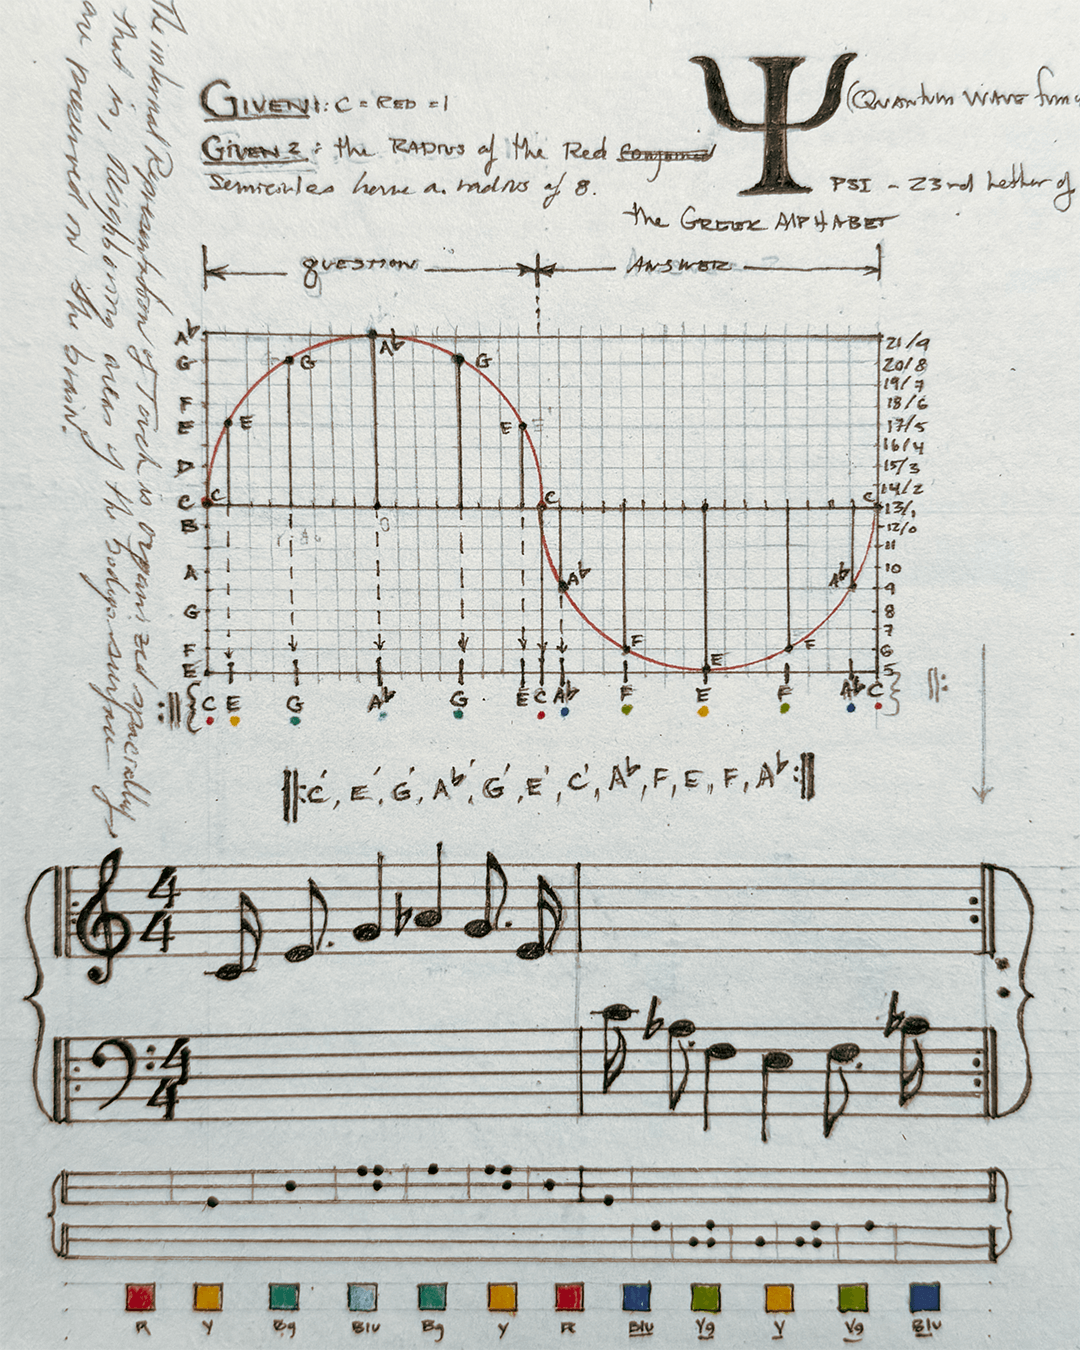 The internal Representation of Touch is organized spacially
that is, Neighboring areas of the bodys surface
are preserved in the brain.
GIVEN 1: C = RED = 1
GIVEN 2: the RADIUS of the Red
Semicircles have a radius of 8.
Ψ
(QUANTUM WAVE
PSI - 23rd Letter of
the GREEK ALPHABET
QUESTION ANSWER
Ab
G
F
E
D
C
B
A
G
F
E
C E G Ab G E C
C Ab F E F Ab C
21/9
20/8
19/7
18/6
17/5
16/4
15/3
14/2
13/1
12/0
11
10
9
8
7
6
5
C E G Ab G E C Ab F E F Ab C
C', E', G', Ab', G', E', C', Ab, F, E, F, Ab
4
4
4
4
R Y Bg Blu Bg Y R Blu Yg Y Yg Blu